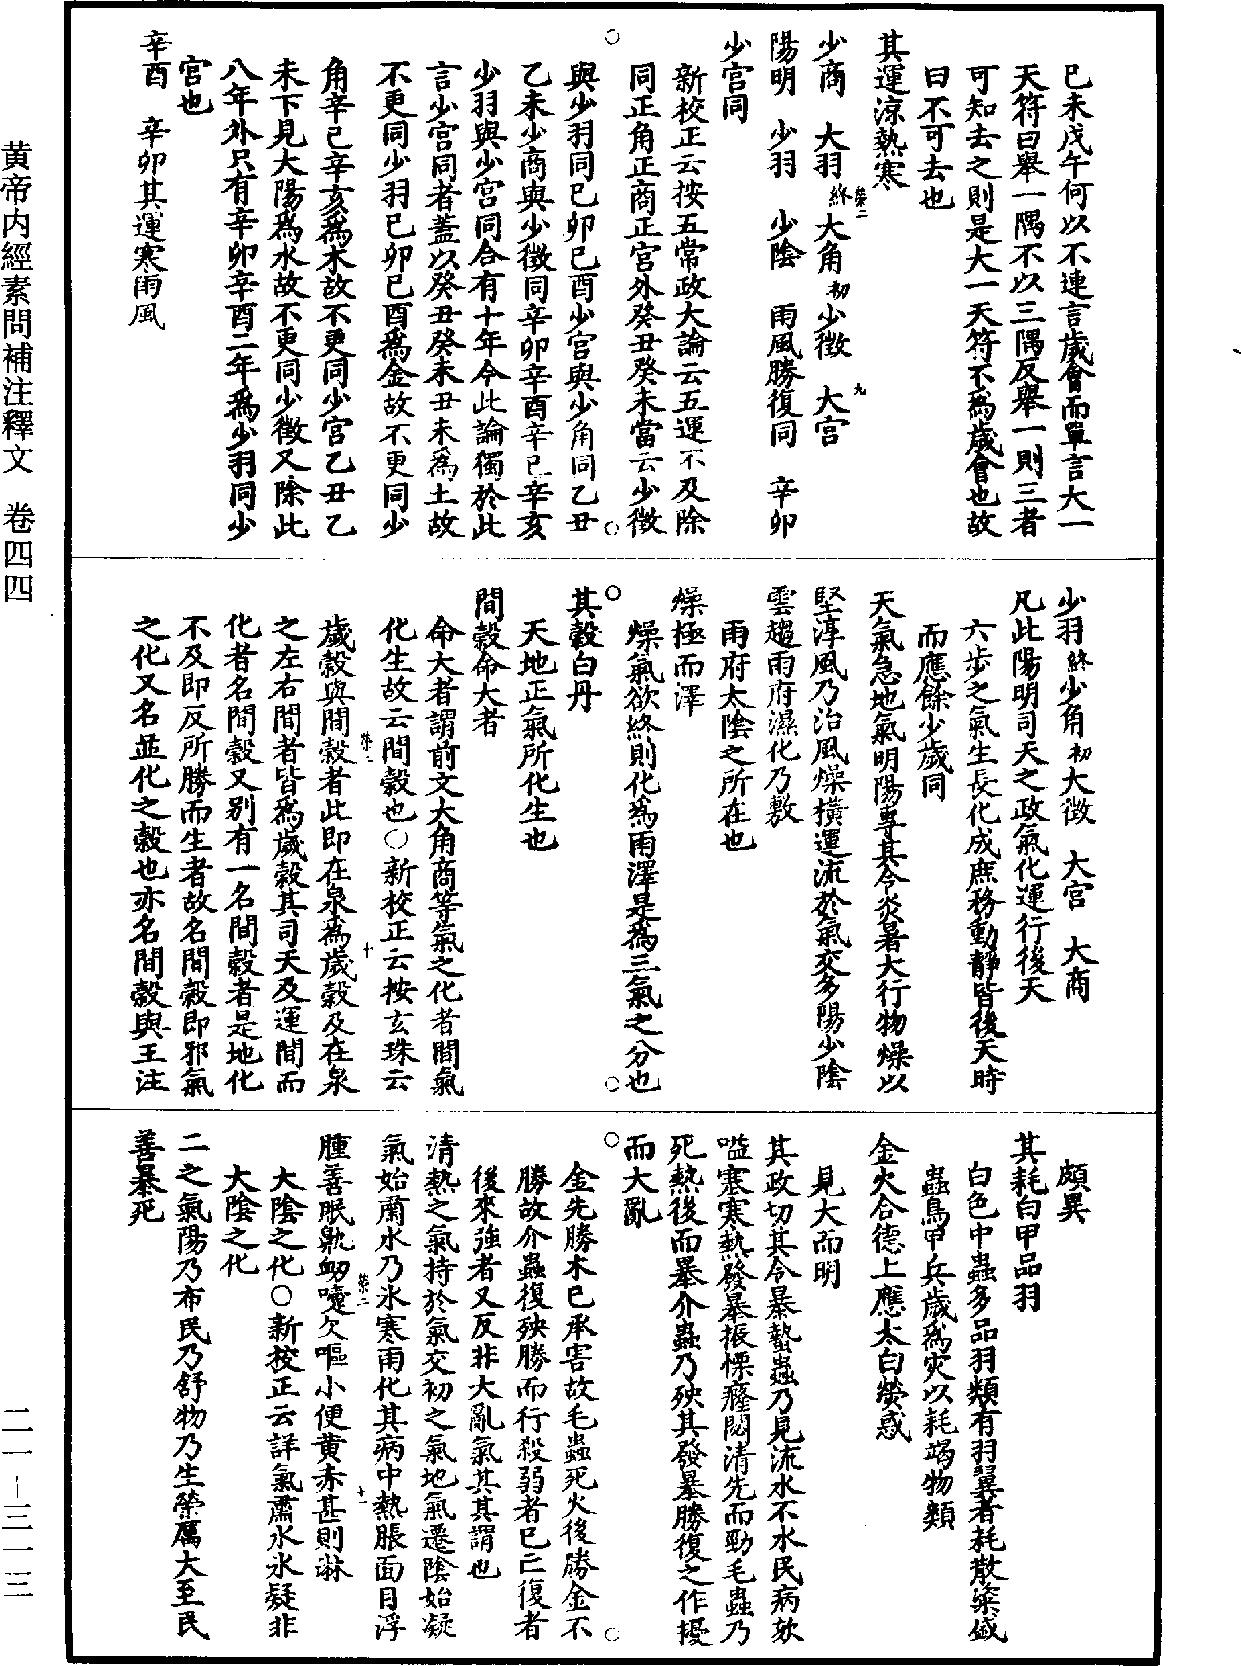 黃帝內經素問補注釋文　卷四四
二一－三一三
巳未戊午何以不連言歲會而單言大一
天符曰舉一隅不以三隅反舉一則三者
可知去之則是大一天符不爲歲會也故
曰不可去也
其運涼熱寒
少商　大羽終　大角初　少徵　大宮
榮二　九
陽明　少羽　少陰　雨風勝復同　辛卯
少宮同
新校正云按五常政大論云五運不及除
同正角正商正宮外癸丑癸未當云少徵
與少羽同巳卯巳酉少宮與少角同乙丑
乙未少商與少徵同辛卯辛酉辛巳辛亥
少羽與少宮同合有十年今此論獨於此
言少宮同者蓋以癸丑癸未丑未爲土故
不更同少羽巳卯巳酉爲金故不更同少
角辛巳辛亥爲木故不更同少宮乙丑乙
未下見大陽爲水故不更同少徵又除此
八年外只有辛卯辛酉二年爲少羽同少
宮也
辛酉　辛卯其運寒雨風
少羽終少角初大徵　大宮　大商
凡此陽明司天之政氣化運行後天
六步之氣生長化成庶務動靜皆後天時
而應餘少歲同
天氣急地氣明陽專其令炎暑大行物燥以
堅淳風乃治風燥橫運流於氣交多陽少陰
雲趨雨府濕化乃敷
雨府太陰之所在也
燥極而澤
燥氣欲終則化爲雨澤是爲三氣之分也
其穀白丹
天地正氣所化生也
間穀命大者
命大者謂前文大角商等氣之化者間氣
化生故云間穀也○新校正云按玄珠云
歲穀與間穀者此即在泉爲歲穀及在泉
榮二　十
之左右間者皆爲歲穀其司天及運間而
化者名間穀又別有一名間穀者是地化
不及即反所勝而生者故名間穀即邪氣
之化又名並化之穀也亦名間穀與王注
頗異
其耗白甲品羽
白色中蟲多品羽類有羽翼者耗散粢盛
蟲鳥甲兵歲爲灾以耗竭物類
金火合德上應太白熒惑
見大而明
其政切其令暴蟄蟲乃見流水不水民病欬
嗌塞寒熱發暴振慄癃閟清先而勁毛蟲乃
死熱後而暴介蟲乃殃其發暴勝復之作擾
而大亂
金先勝木已承害故毛蟲死火後勝金不
勝故介蟲復殃勝而行殺弱者已亡復者
後來強者又反非大亂氣其其謂也
清熱之氣持於氣交初之氣地氣遷陰始凝
氣始肅水乃氷寒雨化其病中熱脹面目浮
腫善眠鼽衂嚏欠嘔小便黃赤甚則淋
榮二　十一
大陰之化○新校正云詳氣肅水氷疑非
大陰之化
二之氣陽乃布民乃舒物乃生榮厲大至民
善暴死